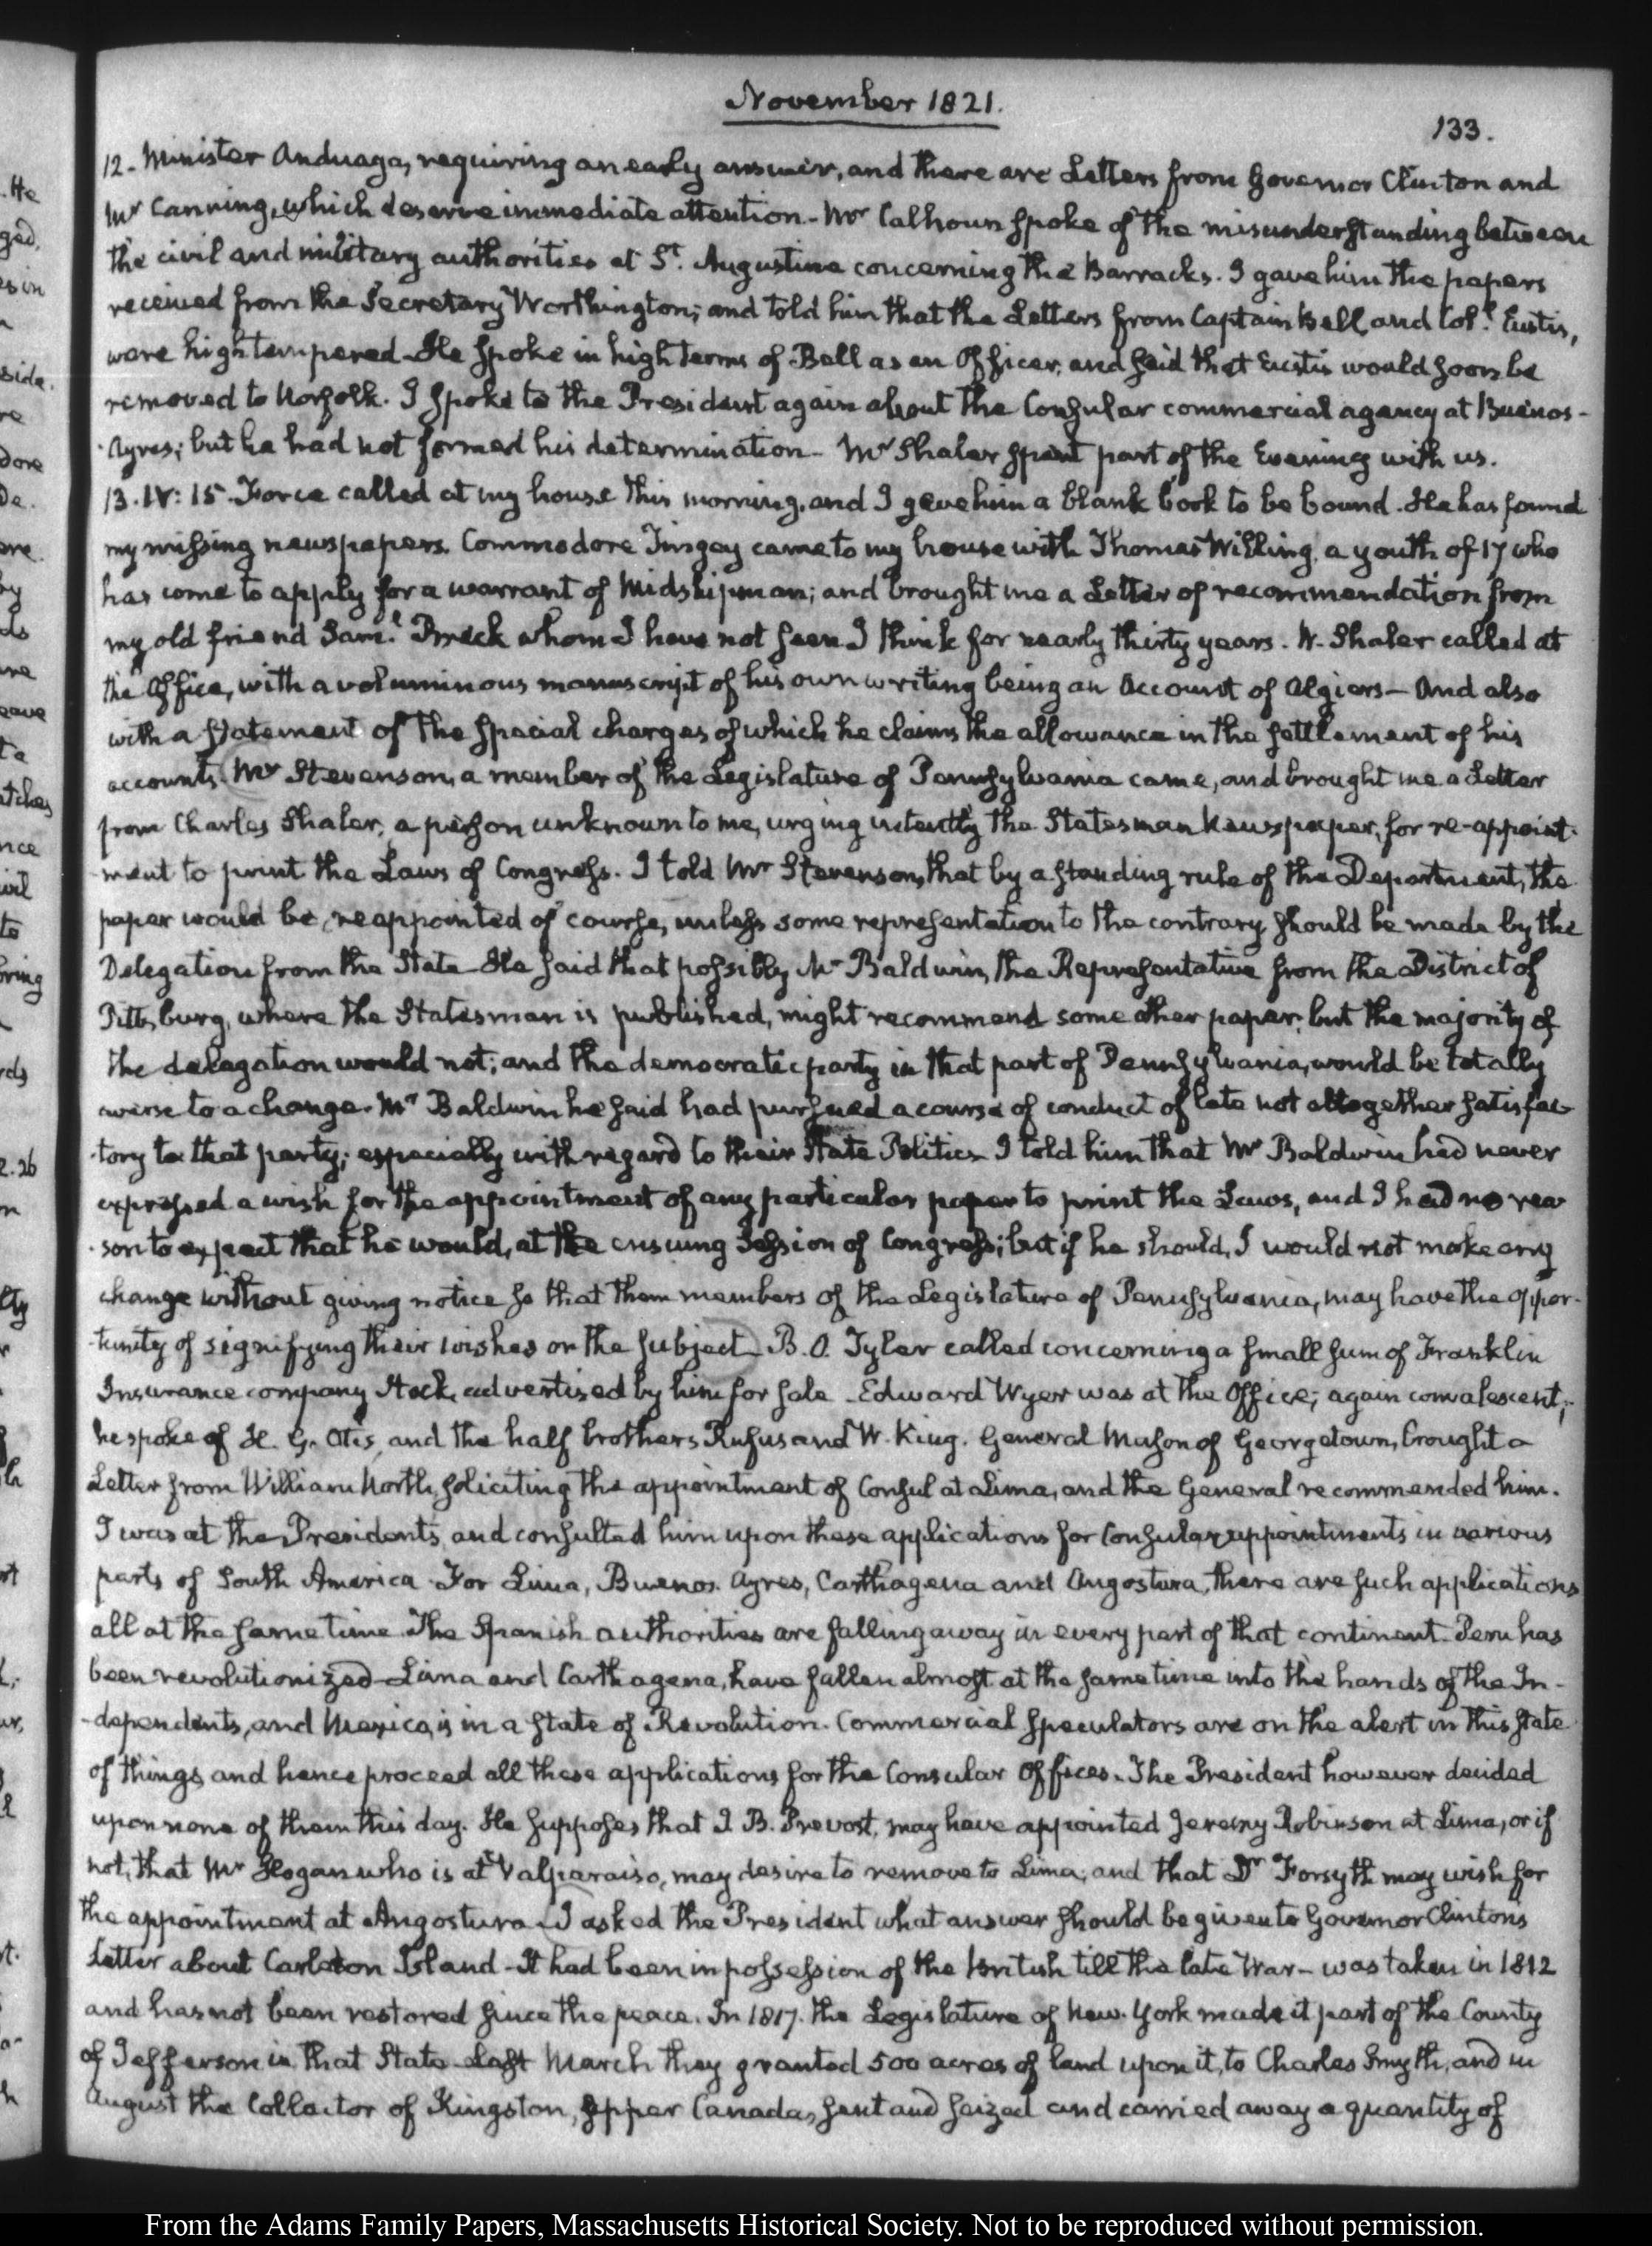 November 1821.
133.
12. Minister Anduaga, requiring an early answer, and there are Letters from Governor Clinton and
Mr Canning, which deserve immediate attention. Mr Calhoun spoke of the misunderstanding between
the civil and military authorities at St. Augustine concerning the Barracks. I gave him the papers
received from the Secretary Worthington; and told him that the Letters from Captain Bell and Coll. Eustis,
were high tempered. He spoke in high terms of Bell as an Officer, and said that Eustis would soon be
removed to Norfolk. I spoke to the President again about the Consular commercial agency at Buenos-
Ayres; but he had not formed his determination. Mr Shaler spent part of the Evening with us.
13. IV: 15. Force called at my house this morning, and I gave him a blank book to be bound. He has found
my missing newspapers. Commodore Tingey came to my house with Thomas Willing, a youth of 17 who
has come to apply for a warrant of Midshipman; and brought me a Letter of recommendation from
my old friend Saml. Breck whom I have not seen I think for nearly thirty years. W. Shaler called at
the Office, with a voluminous manuscript of his own writing being an Account of Algiers — And also
with a statement of the special charges of which he claims the allowance in the settlement of his
accounts. Mr Stevenson, a member of the Legislature of Pennsylvania came, and brought me a Letter
from Charles Shaler, a person unknown to me, urging intently the Statesman Newspaper, for re-appoint-
ment to print the Laws of Congress. I told Mr Stevenson, that by a standing rule of the Department, the
paper would be, reappointed of course, unless some representation to the contrary should be made by the
Delegation from the State. He said that possibly Mr Baldwin, the Representative from the District of
Pittsburg, where the Statesman is published, might recommend some other paper; but the majority of
the delegation would not; and the democratic party in that part of Pennsylvania, would be totally
averse to a change. Mr Baldwin he said had pursued a course of conduct of late not altogether satisfac-
tory to that party; especially with regard to their State Politics. I told him that Mr Baldwin had never
expressed a wish for the appointment of any particular paper to print the Laws, and I had no rea
son to expect that he would, at the ensuing Session of Congress; but if he should, I would not make any
change without giving notice so that them members of the Legislature of Pennsylvania, may have the oppor-
tunity of signifying their wishes on the subject. B. O. Tyler called concerning a small sum of Franklin
Insurance company Stock, advertized by him for sale. Edward Wyer was at the Office; again convalescent;
he spoke of H. G. Otis, and the half brothers Rufus and W. King. General Mason of Georgetown, brought a
Letter from William North, soliciting the appointment of Consul at Lima, and the General recommended him.
I was at the Presidents, and consulted him upon these applications for Consular appointments in various
parts of South America. For Lima, Buenos Ayres, Carthagena and Angostura, there are such applications
all at the same time. The Spanish authorities are falling away in every part of that continent. Peru has
been revolutionized. Lima and Carthagena, have fallen almost at the same time into the hands of the In-
dependents, and Mexico, is in a state of Revolution. Commercial Speculators are on the alert in this state
of things, and hence proceed all these applications for the Consular Offices. The President however decided
upon none of them this day. He supposes that J. B. Prevost, may have appointed Jeremy Robinson at Lima, or if
not, that Mr Hogan who is at Valparaiso, may desire to remove to Lima, and that Dr Forsyth may wish for
the appointment at Angostura. I asked the President what answer should be given to Governor Clinton's
Letter about Carleton Island. It had been in possession of the British till the late War — was taken in 1812
and has not been restored since the peace. In 1817. the Legislature of New-York made it part of the County
of Jefferson in that State. Last March they granted 500 acres of land upon it, to Charles Smyth, and in
August the Collector of Kingston, Upper Canada, sent and seized and carried away a quantity of
From the Adams Family Papers, Massachusetts Historical Society. Not to be reproduced without permission.